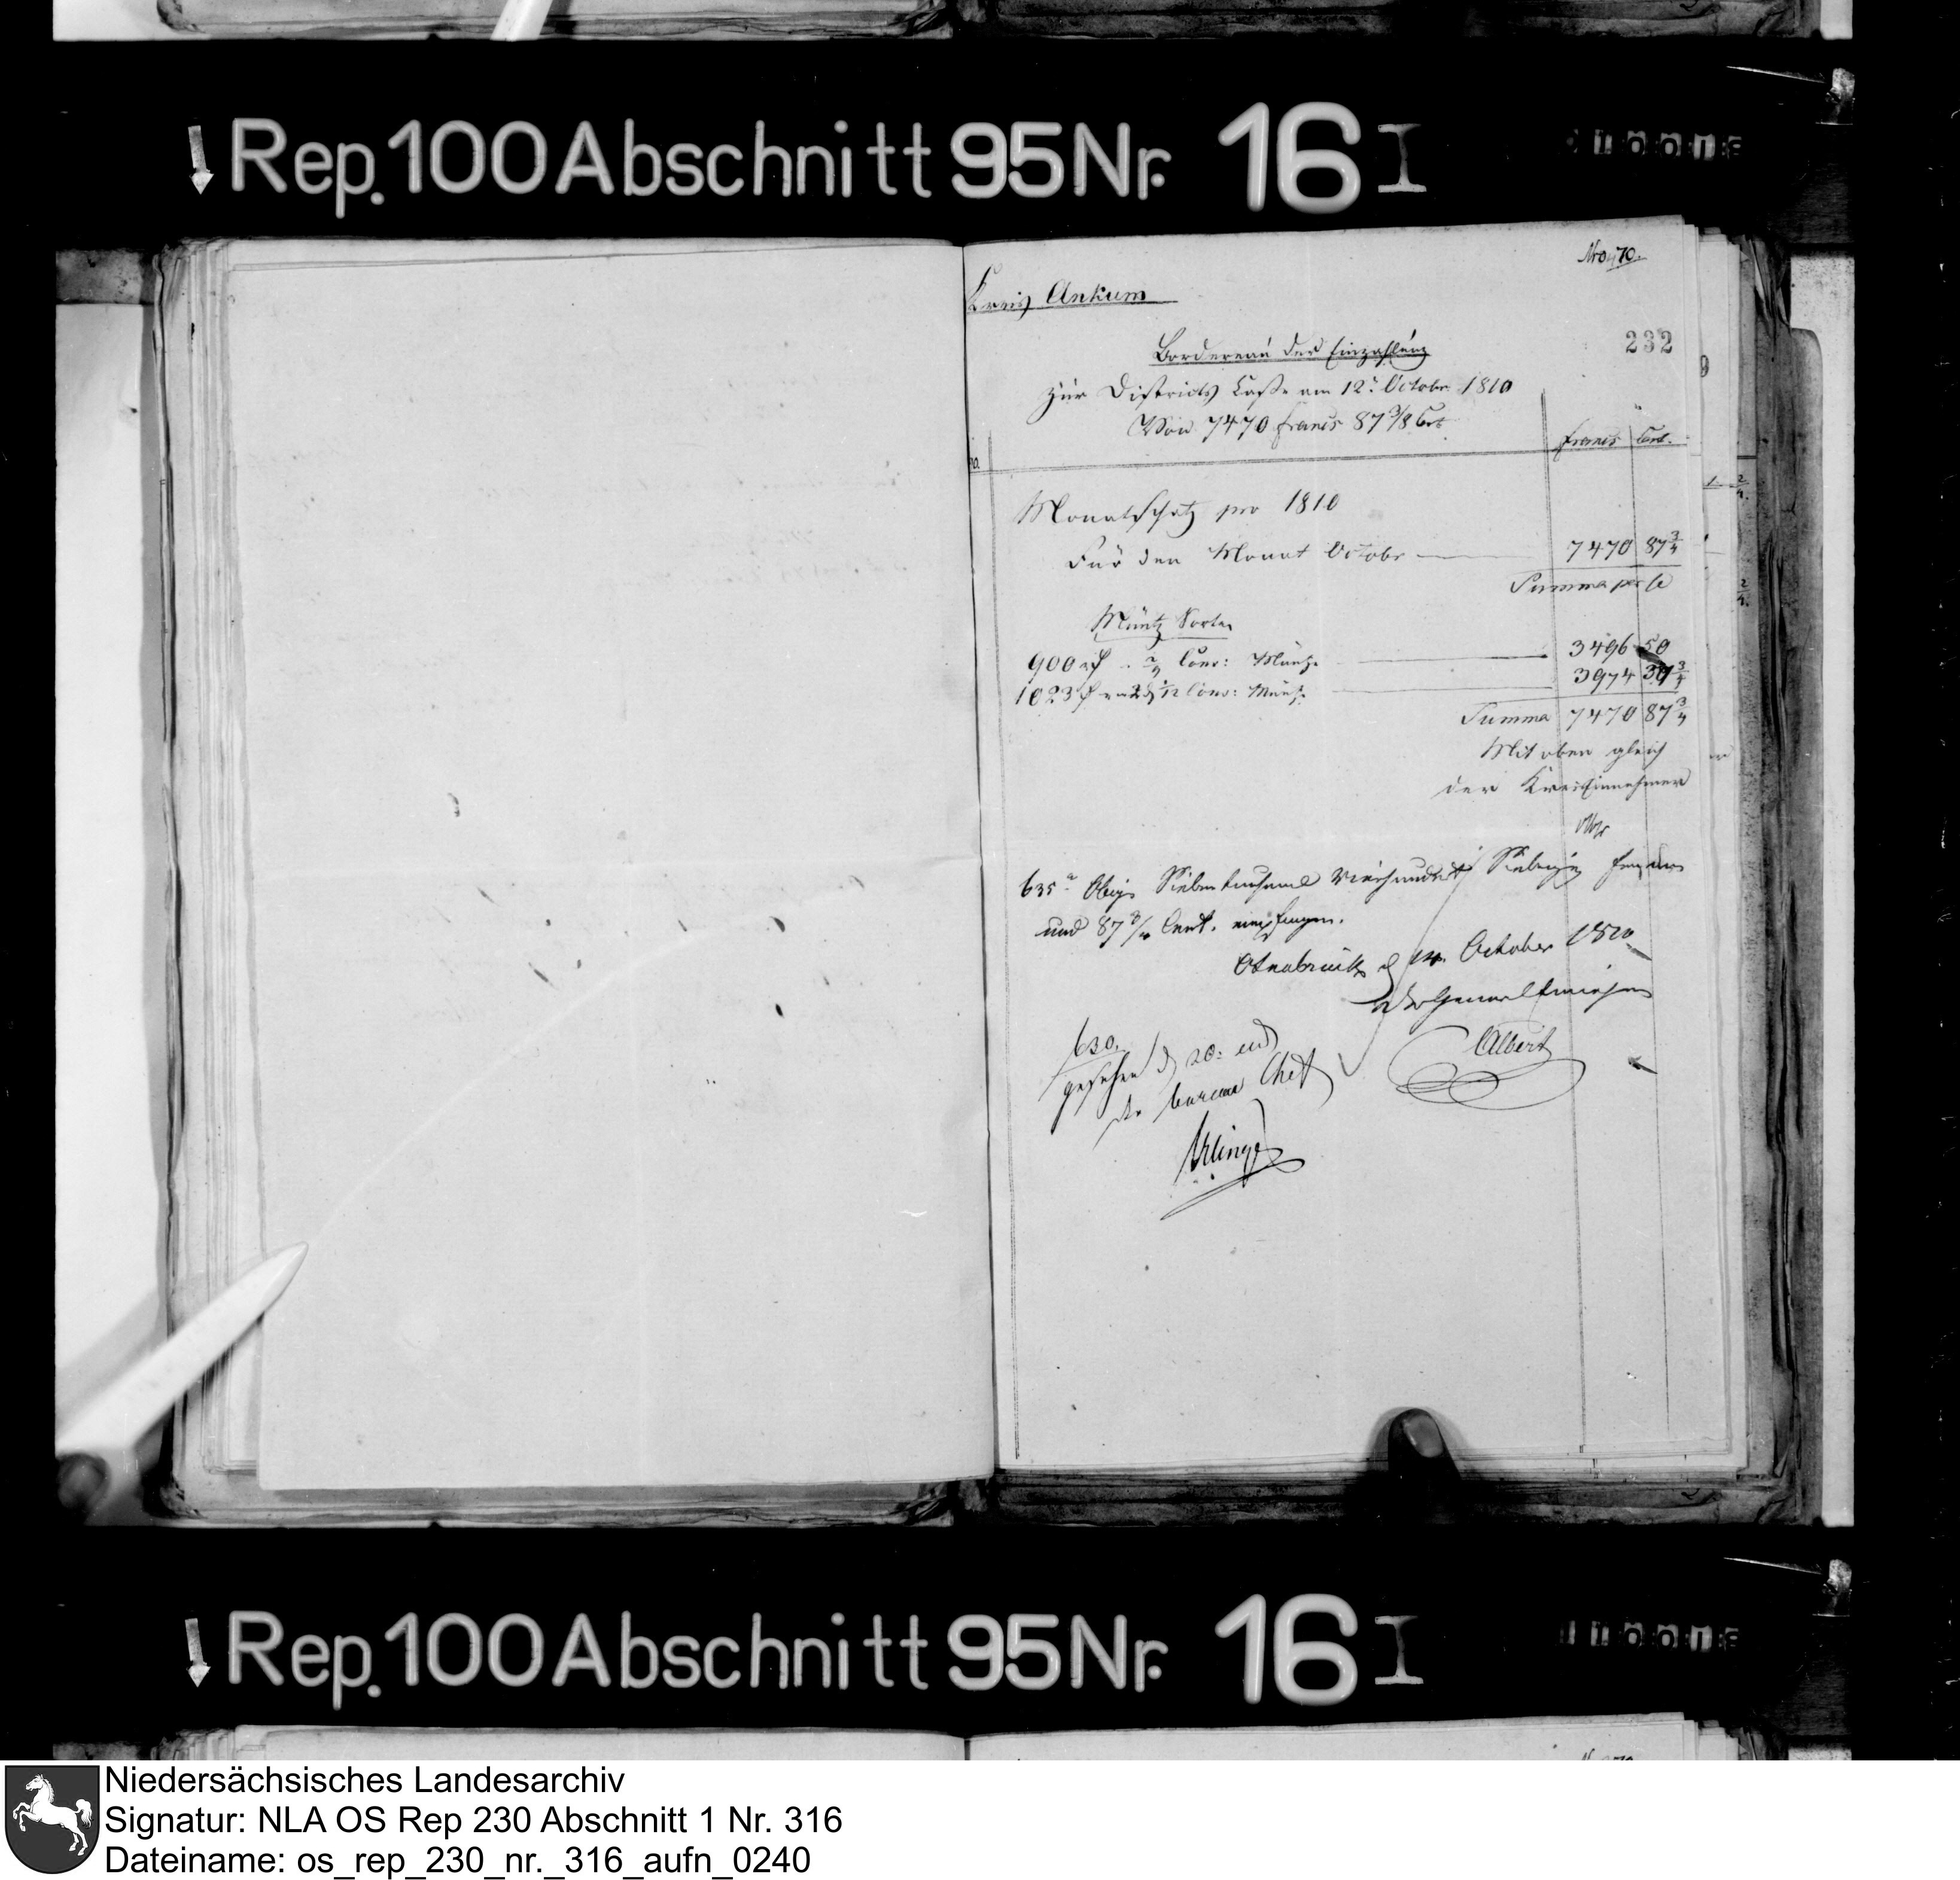 Rep. 100 Abschnitt 95 Nr. 16 I
Nro. 70.
Kreis Ankum
232
Bordereau der Einzahlung
zur Districts Casse am 12t October 1810
Von 7470 Francs 87 3/8 Cent
Francs Cent.
Monatschatz pro 1810
Für den Monat October 7470 87 3/4
Summa per se
Müntz Sorten
900 Conv: Müntze 3496 50
1023 1/12 Conv: Müntze 3974 37 3/4
Summa 7470 87 3/4
Mit oben gleich
der Kreiseinnehmer
635 Obige Siebentausend Vierhundert Siebenzig Franken
und 87 3/4 Cent. empfangen.
Osnabrück d October 1810
Der Generaleinnehmer
Albert
630.
gesehen d 20. 
der bureau Chef
Rep. 100 Abschnitt 95 Nr. 16 I
Niedersächsisches Landesarchiv
Signatur: NLA OS Rep 230 Abschnitt 1 Nr. 316
Dateiname: os_rep_230_nr._316_aufn_0240